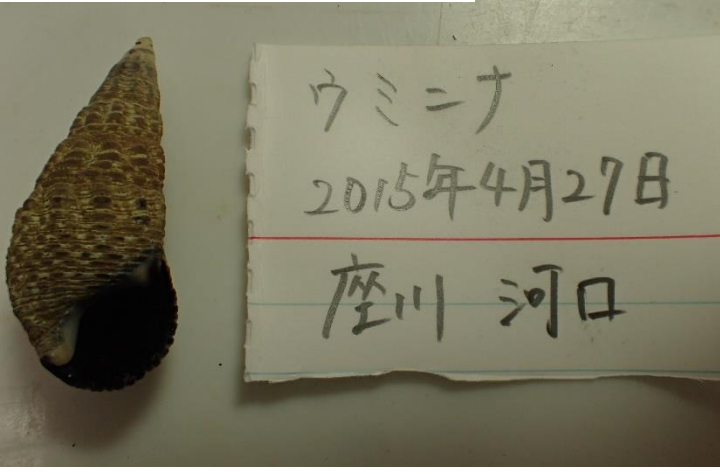 ウミニナ
2015年4月27日
座川 河口